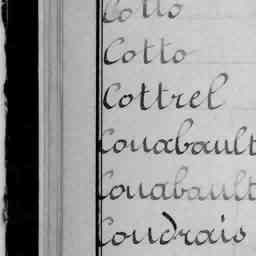 Cotto
Cotto
Cottrel
Couabault
Couabault
Coudrais